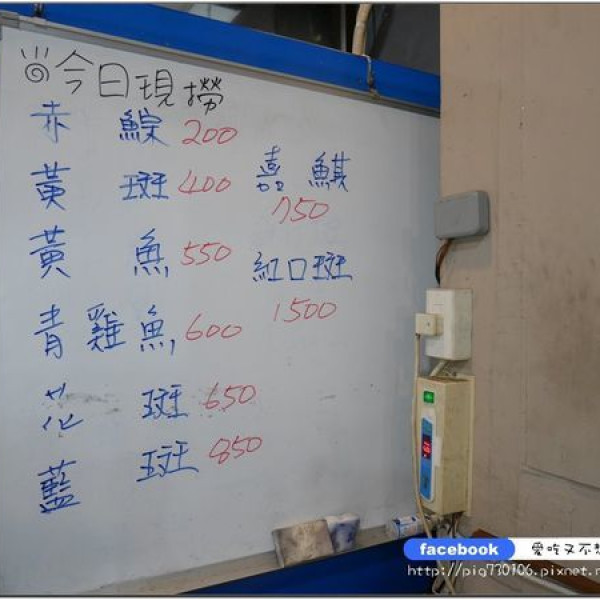 今日現撈
赤鯮200
黃斑400
黃魚550
青雞魚600
花斑650
藍斑850
嘉鯕
750
紅口斑
1500
facebook 愛吃又不想
http://pig730106.pixnet.n